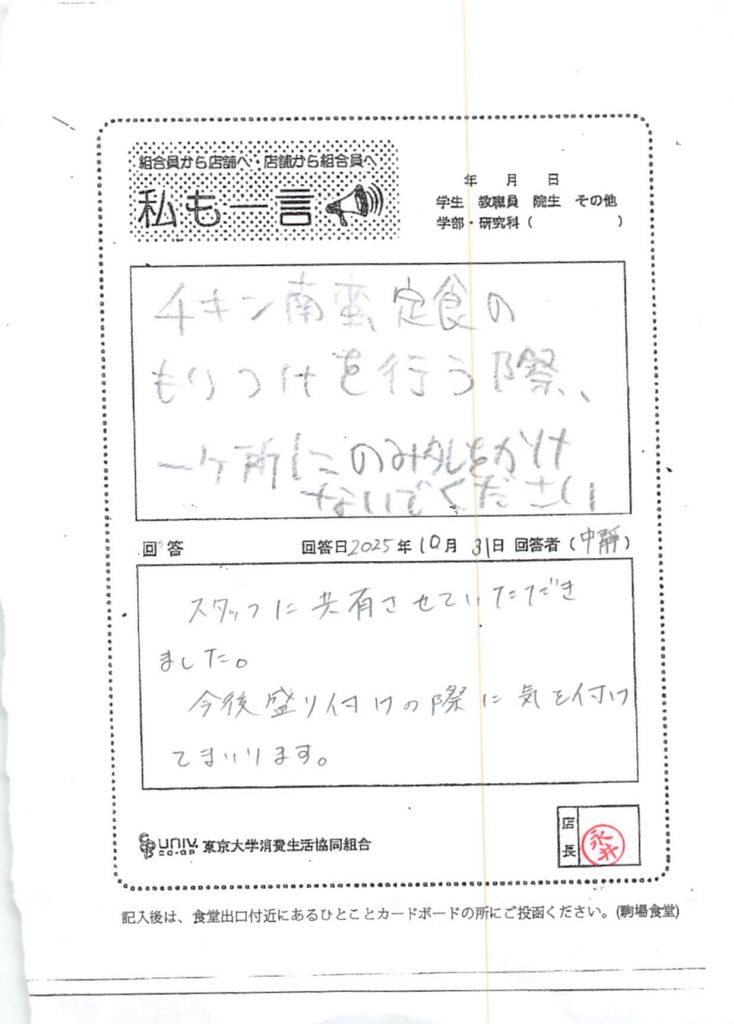 組合員から店舗へ・店舗から組合員へ
私も一言
年 月 日
学生 教職員 院生 その他
学部・研究科( )
チキン南蛮定食の
もりつけを行う際、
一ケ所にのみタレをかけ
ないでください
回答 回答日2025年10月31日 回答者(中静)
スタッフに共有させていただき
ました。
今後盛り付けの際に気を付け
てまいります。
univ. CO-OP 東京大学消費生活協同組合
店長 永井
記入後は、食堂出口付近にあるひとことカードボードの所にご投函ください。(駒場食堂)